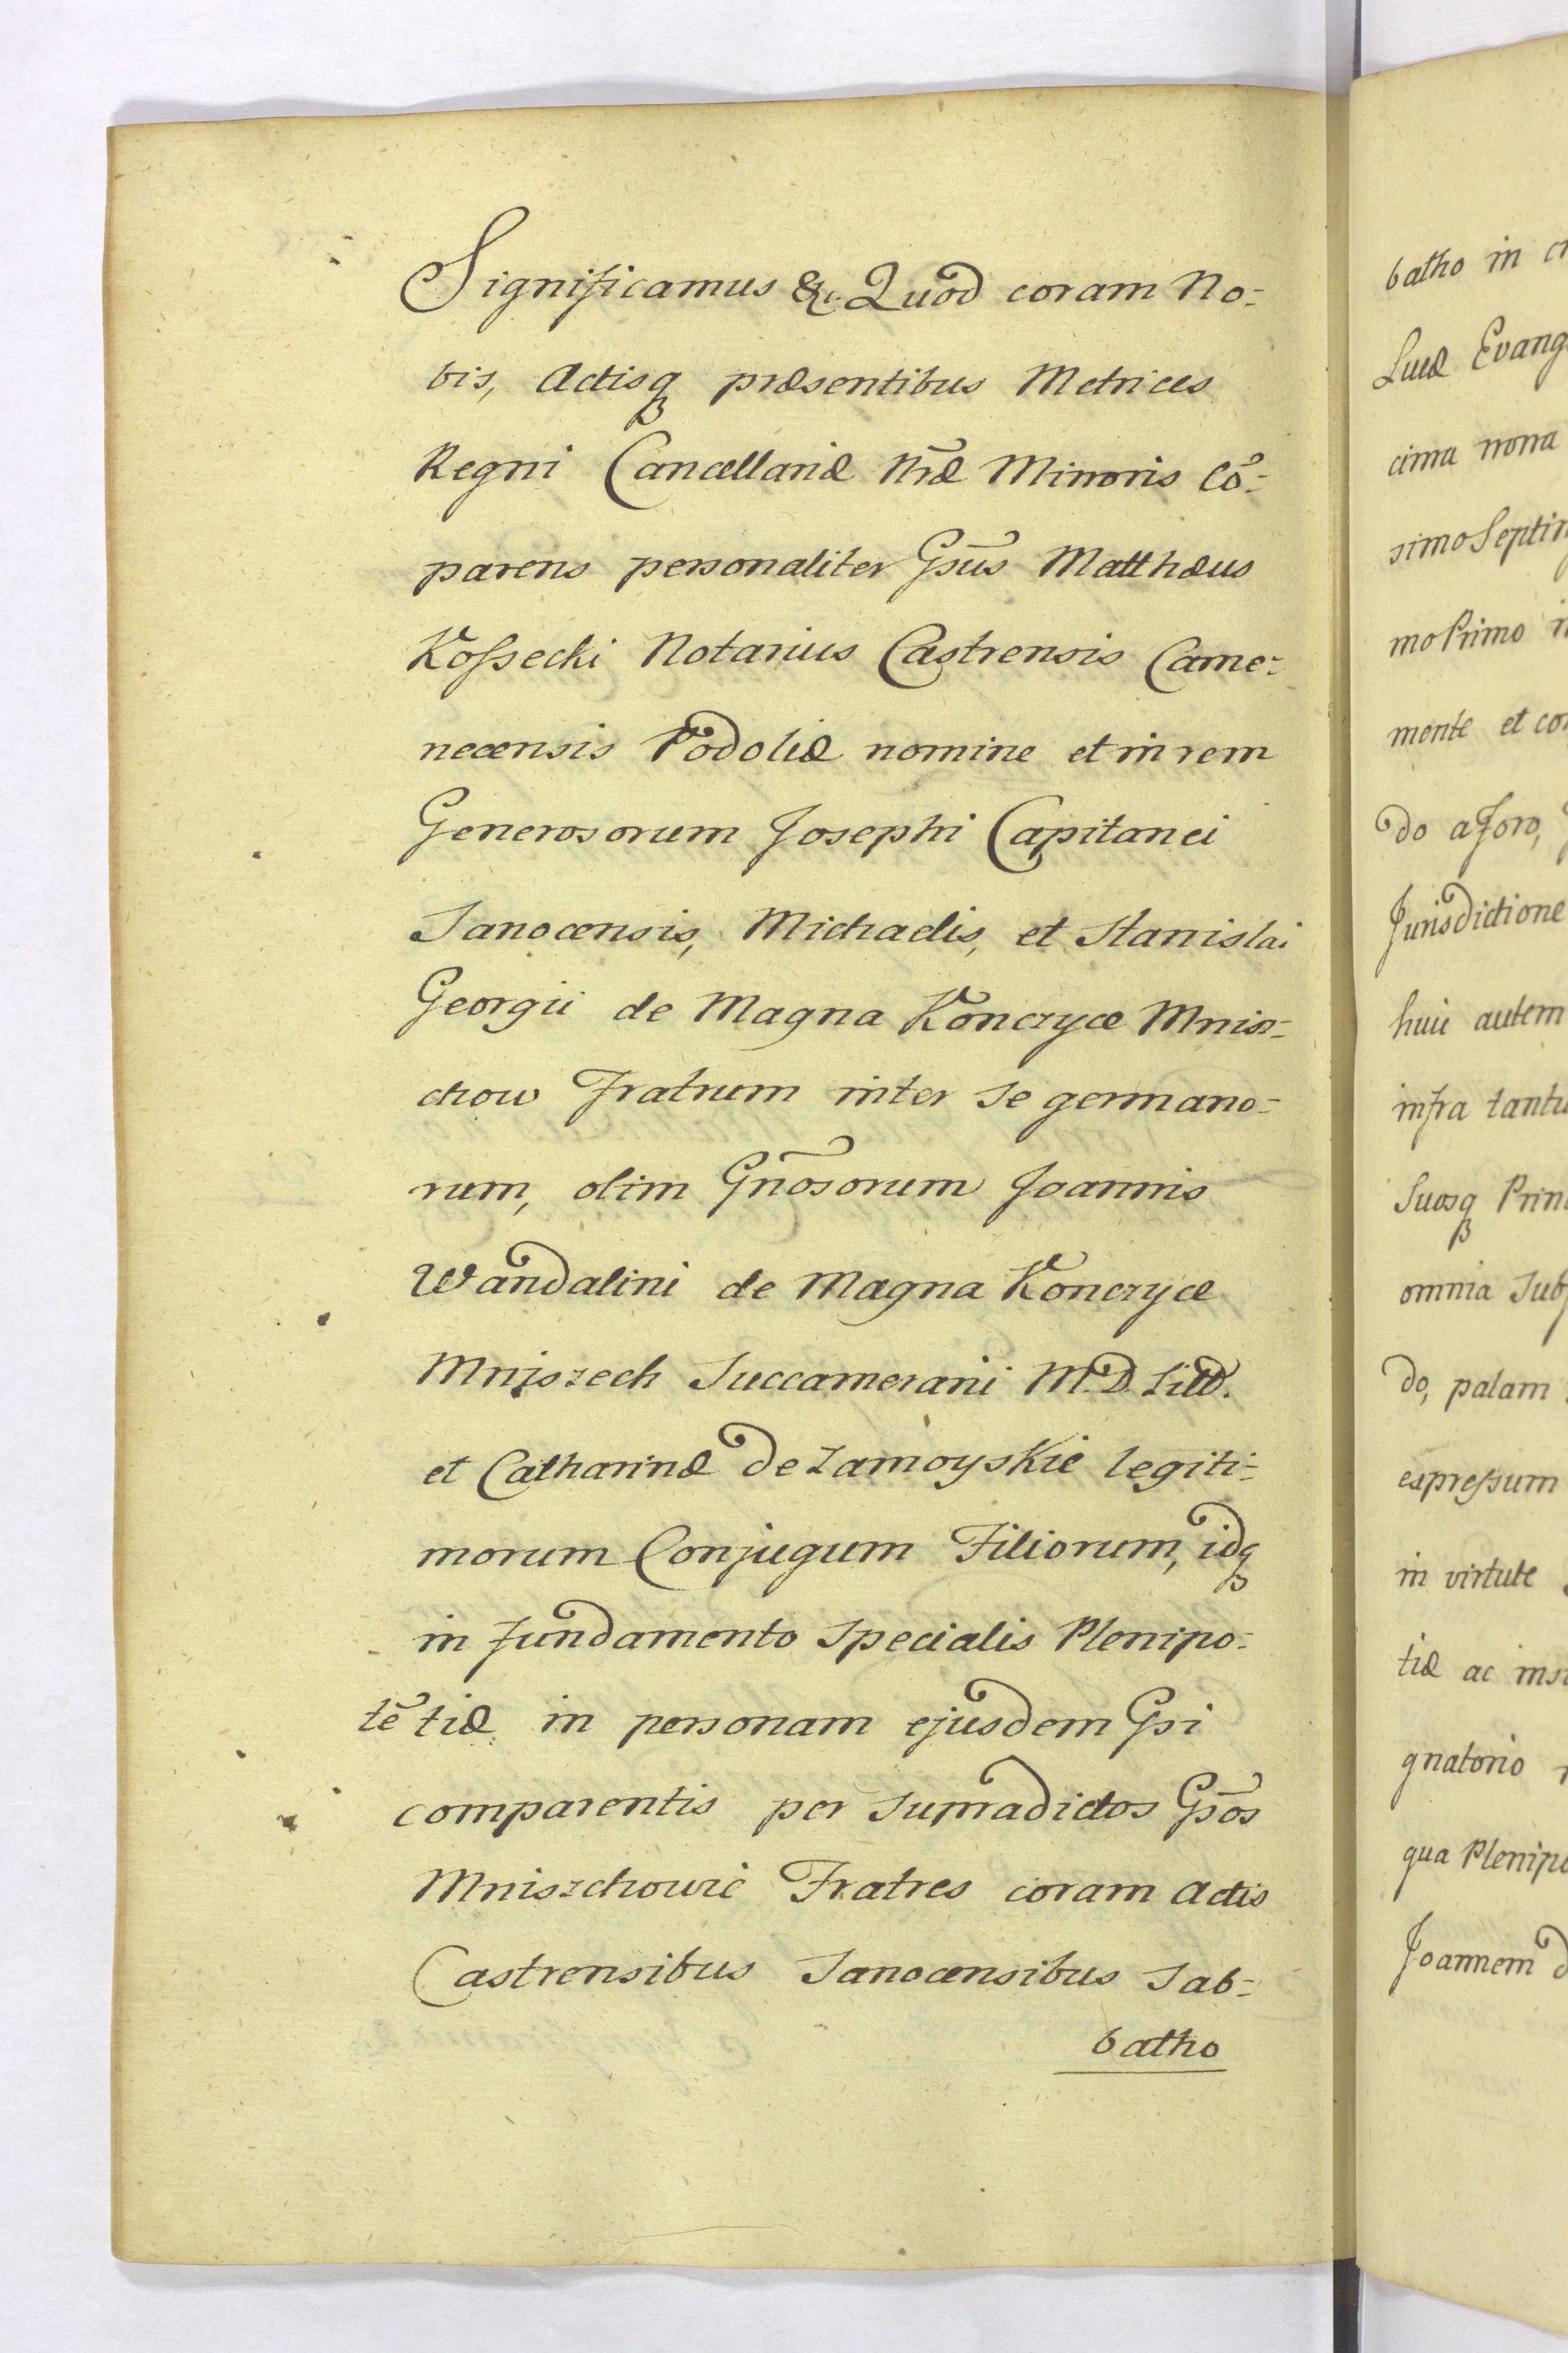 Significamus &c. Quod coram No-
bis, Actisq̃ præsentibus Metrices
Regni Cancellariæ Nr̃æ Minoris Cõ-
parens personaliter Gsũs Matthæus
Kossecki Notarius Castrensis Came-
necensis Podoliæ nomine et in rem
Generosorum Josephi Capitanei
Sanocensis, Michaelis, et Stanislai
Georgii de Magna Konczyce Mnisz-
chow Fratrum inter se germano-
rum, olim Gñosorum Joannis
Wandalini de Magna Konczyce
Mniszech Succamerarii M.D. Litt.
et Catharinæ de Zamoyskie legiti-
morum Conjugum Filiorum, idq̃
in fundamento specialis Plenipo-
tẽtiæ in personam ejusdem Gsi
comparentis per supradictos Gsõs
Mniszchowie Fratres coram Actis
Castrensibus Sanocensibus Sab-
batho
batho in
Lucæ Evang
cima nona
simo Septin
mo Primo
mente et con
do a foro,
Jurisdictione
huic autem
infra tantu
Suosq̃ Prin
omnia sub
do, palam
expressum
in virtute
tiæ ac ins
gnatorio
qua Plenipo
Joannem d